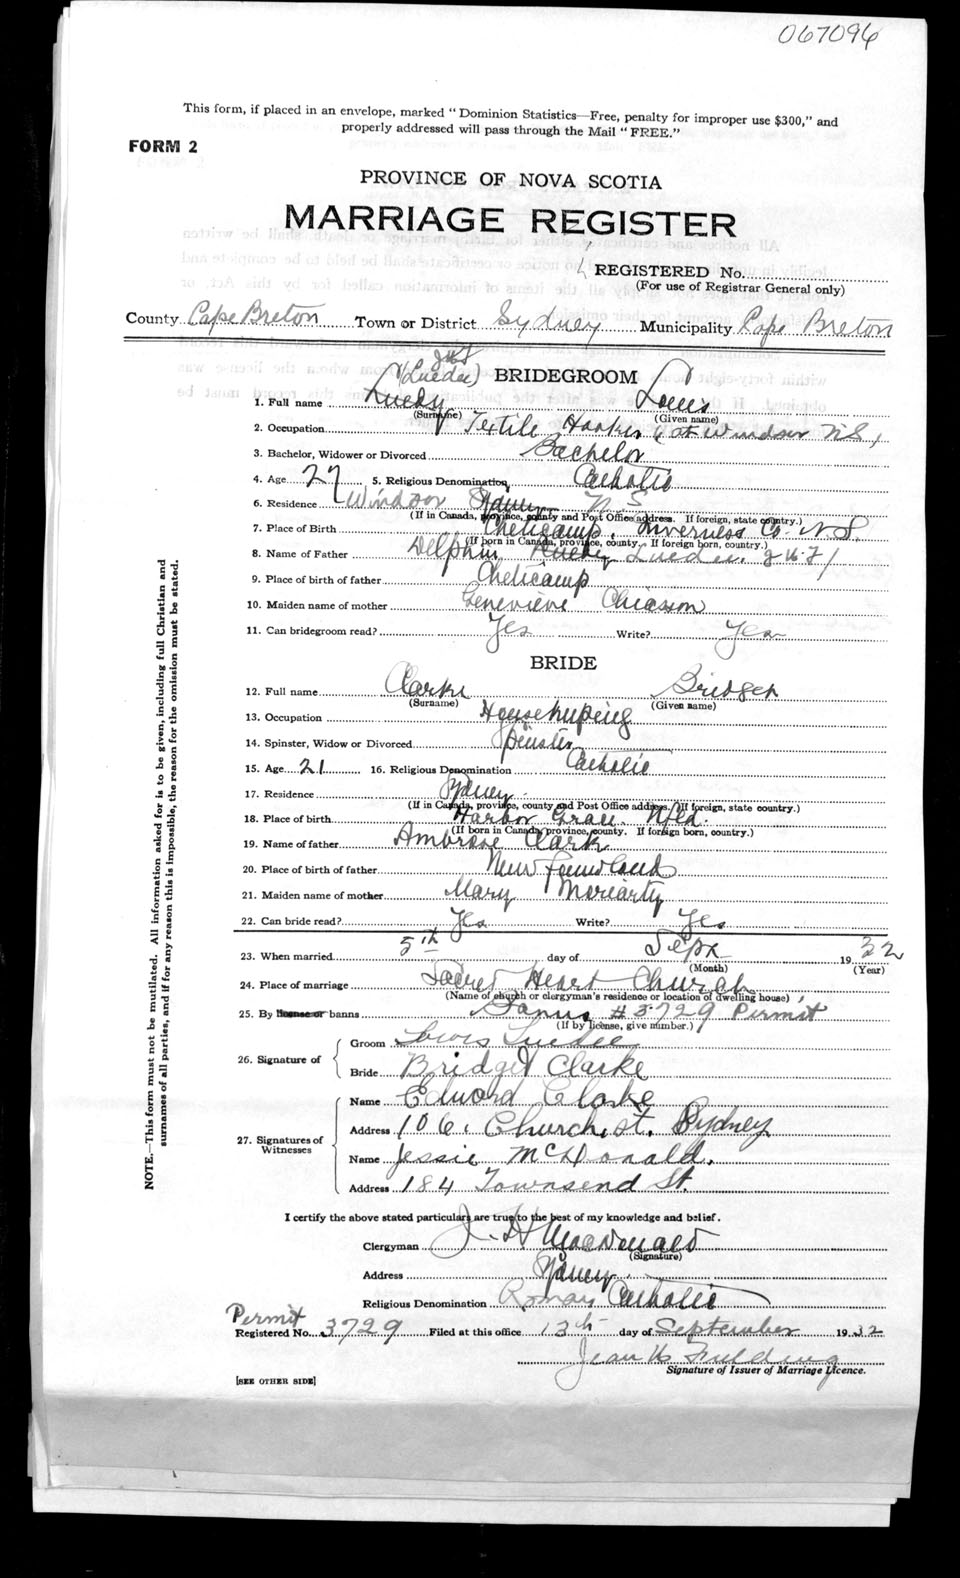 067096
This form, if placed in an envelope, marked " Dominion Statistics—Free, penalty for improper use $300," and
properly addressed will pass through the Mail " FREE."
FORM 2
PROVINCE OF NOVA SCOTIA
MARRIAGE REGISTER
REGISTERED No.
(For use of Registrar General only)
County Cape Breton Town or District Sydney Municipality Cape Breton
(Luedee) BRIDEGROOM
1. Full name Louis
(Surname) (Given name)
2. Occupation Textile Hooker (at Windsor NS)
3. Bachelor, Widower or Divorced Bachelor
4. Age 27 5. Religious Denomination Catholic
6. Residence Windsor N.S
(If in Canada, province, county and Post Office address. If foreign, state country.)
7. Place of Birth Cheticamp, Inverness Co. N.S.
(If born in Canada, province, county. If foreign born, country.)
8. Name of Father Delphin Luedee
9. Place of birth of father Cheticamp
10. Maiden name of mother Genevieve Chiasson
11. Can bridegroom read? Yes Write? Yes
BRIDE
12. Full name Clarke Bridget
(Surname) (Given name)
13. Occupation Housekeeping
14. Spinster, Widow or Divorced Spinster
15. Age 21 16. Religious Denomination Catholic
17. Residence Sydney
(If in Canada, province, county and Post Office address. If foreign, state country.)
18. Place of birth Harbor Grace Nfld.
(If born in Canada, province, county. If foreign born, country.)
19. Name of father Ambrose Clark
20. Place of birth of father New Foundland
21. Maiden name of mother Mary Moriarty
22. Can bride read? Yes Write? Yes
23. When married 5th day of Sept 1932
(Month) (Year)
24. Place of marriage Sacred Heart Church
(Name of church or clergyman's residence or location of dwelling house)
25. By license or banns Banns #3729 Permit
(If by license, give number.)
26. Signature of
Groom Louis Luedee
Bride Bridget Clarke
27. Signatures of Witnesses
Name Edward Clarke
Address 106, Church st. Sydney
Name Jessie McDonald.
Address 184 Townsend St.
I certify the above stated particulars are true to the best of my knowledge and belief.
Clergyman J. H. MacDonald
(Signature)
Address Sydney
Religious Denomination Roman Catholic
Permit
Registered No. 3729 Filed at this office 13th day of September 1932
Jean Fielding
Signature of Issuer of Marriage Licence.
[SEE OTHER SIDE]
NOTE.—This form must not be mutilated. All information asked for is to be given, including full Christian and
surnames of all parties, and if for any reason this is impossible, the reason for the omission must be stated.